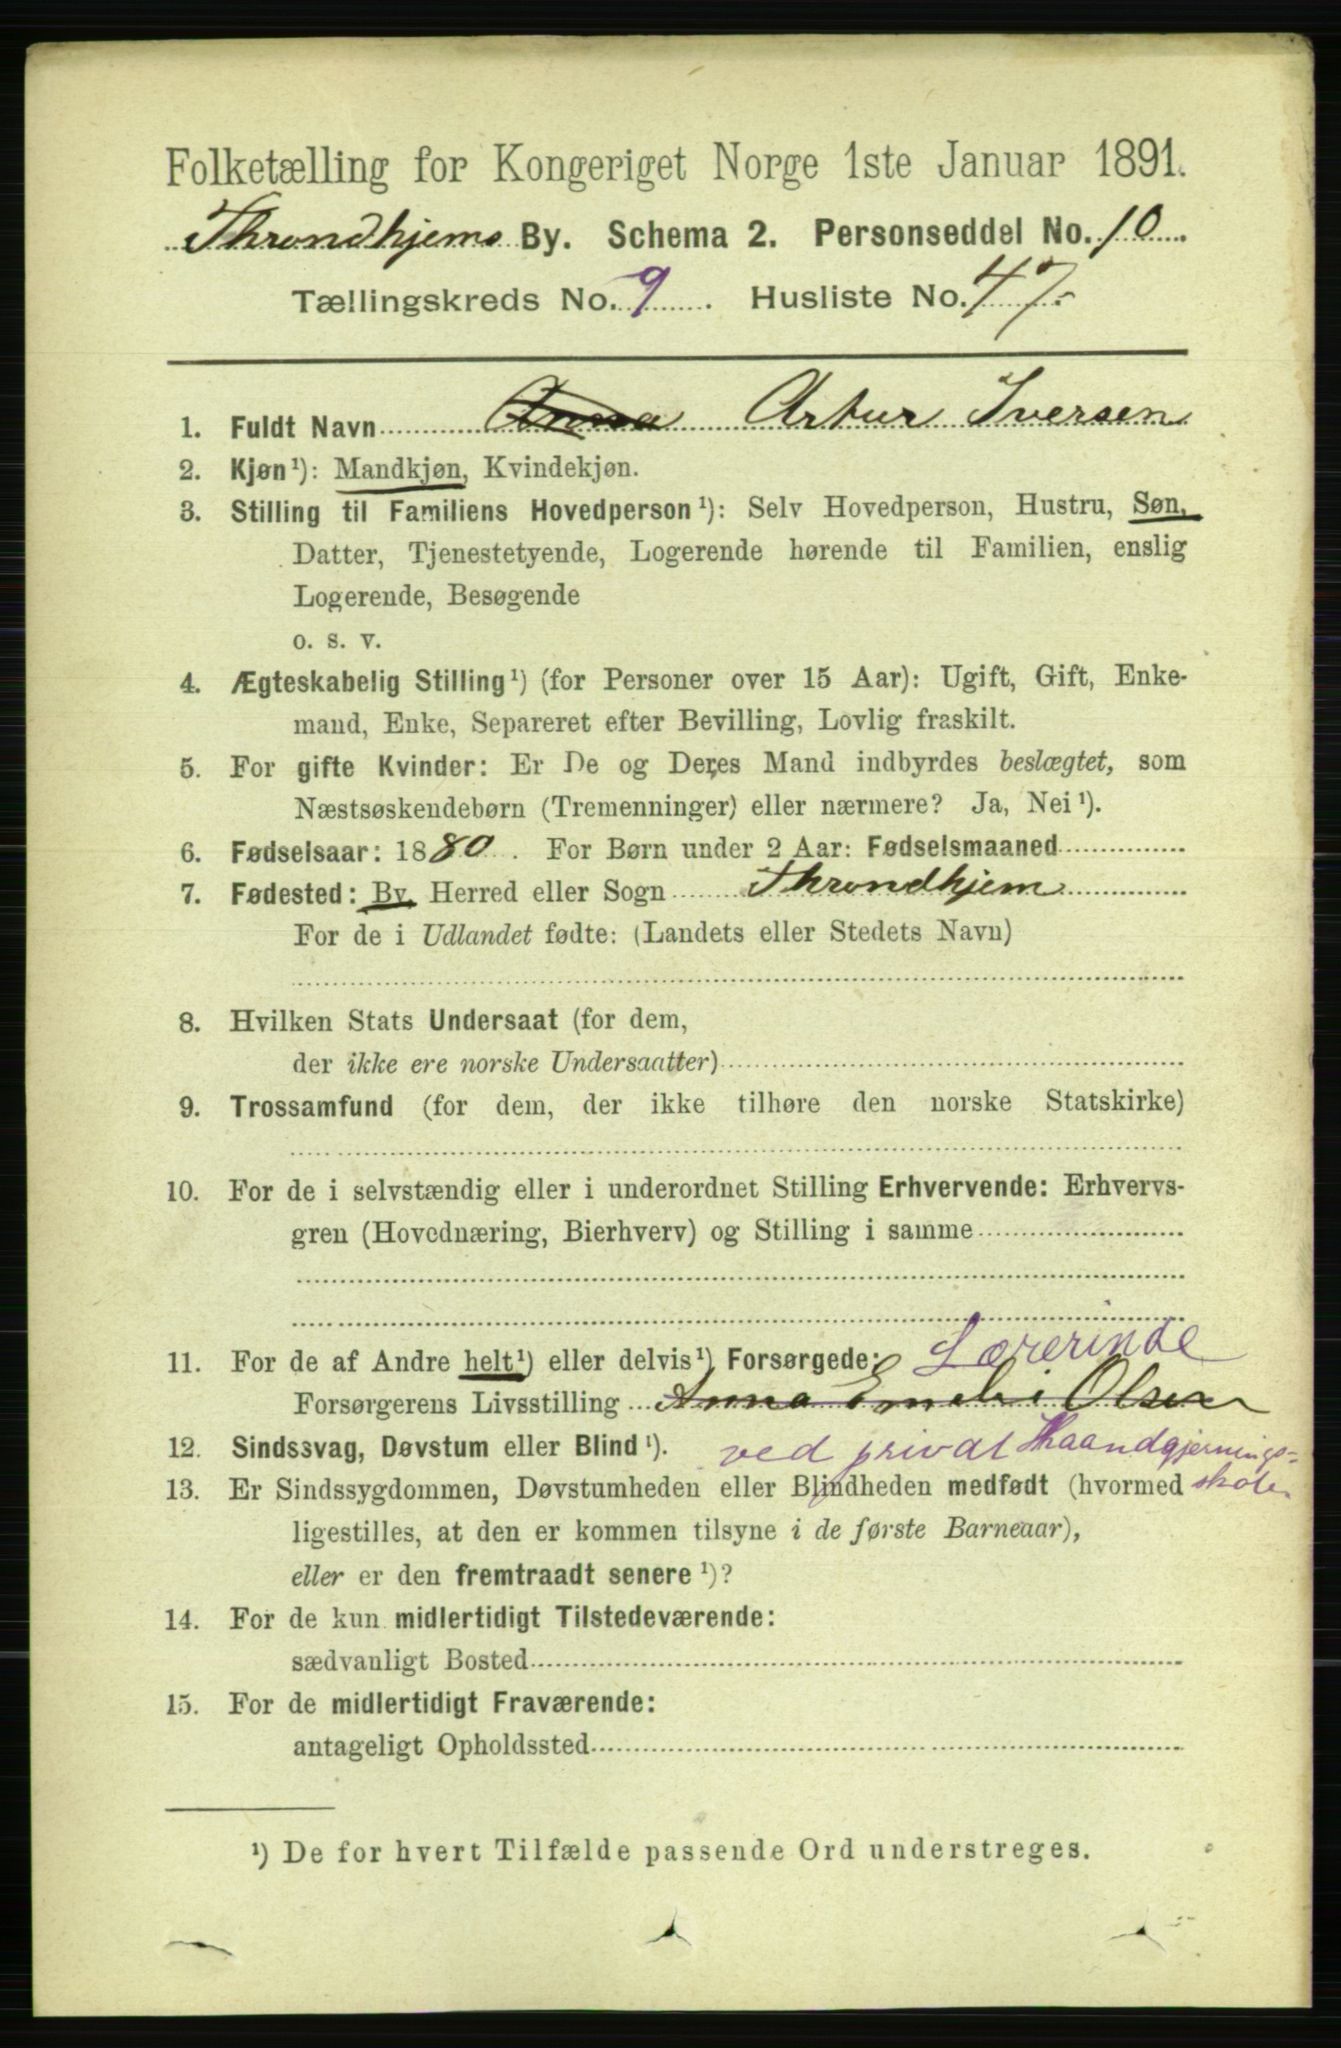 Folketælling for Kongeriget Norge 1ste Januar 1891.
Throndhjems By. Schema 2. Personseddel No. 10
Tællingskreds No. 9. Husliste No. 47.
1. Fuldt Navn Anna Artur Iversen
2. Kjøn¹): Mandkjøn, Kvindekjøn.
3. Stilling til Familiens Hovedperson¹): Selv Hovedperson, Hustru, Søn,
Datter, Tjenestetyende, Logerende hørende til Familien, enslig
Logerende, Besøgende
o. s. v.
4. Ægteskabelig Stilling¹) (for Personer over 15 Aar): Ugift, Gift, Enke-
mand, Enke, Separeret efter Bevilling, Lovlig fraskilt.
5. For gifte Kvinder: Er De og Deres Mand indbyrdes beslægtet, som
Næstsøskendebørn (Tremenninger) eller nærmere? Ja, Nei¹).
6. Fødselsaar: 1880. For Børn under 2 Aar: Fødselsmaaned
7. Fødested: By, Herred eller Sogn Throndhjem
For de i Udlandet fødte: (Landets eller Stedets Navn)
8. Hvilken Stats Undersaat (for dem,
der ikke ere norske Undersaatter)
9. Trossamfund (for dem, der ikke tilhøre den norske Statskirke)
10. For de i selvstændig eller i underordnet Stilling Erhvervende: Erhvervs-
gren (Hovednæring, Bierhverv) og Stilling i samme
11. For de af Andre helt¹) eller delvis¹) Forsørgede: Lærerinde
Forsørgerens Livsstilling Anna Emelie Olsen
12. Sindssvag, Døvstum eller Blind¹). ved privat Haandgjernings-
13. Er Sindssygdommen, Døvstumheden eller Blindheden medfødt (hvormed skole.
ligestilles, at den er kommen tilsyne i de første Barneaar),
eller er den fremtraadt senere¹)?
14. For de kun midlertidigt Tilstedeværende:
sædvanligt Bosted
15. For de midlertidigt Fraværende:
antageligt Opholdssted
¹) De for hvert Tilfælde passende Ord understreges.